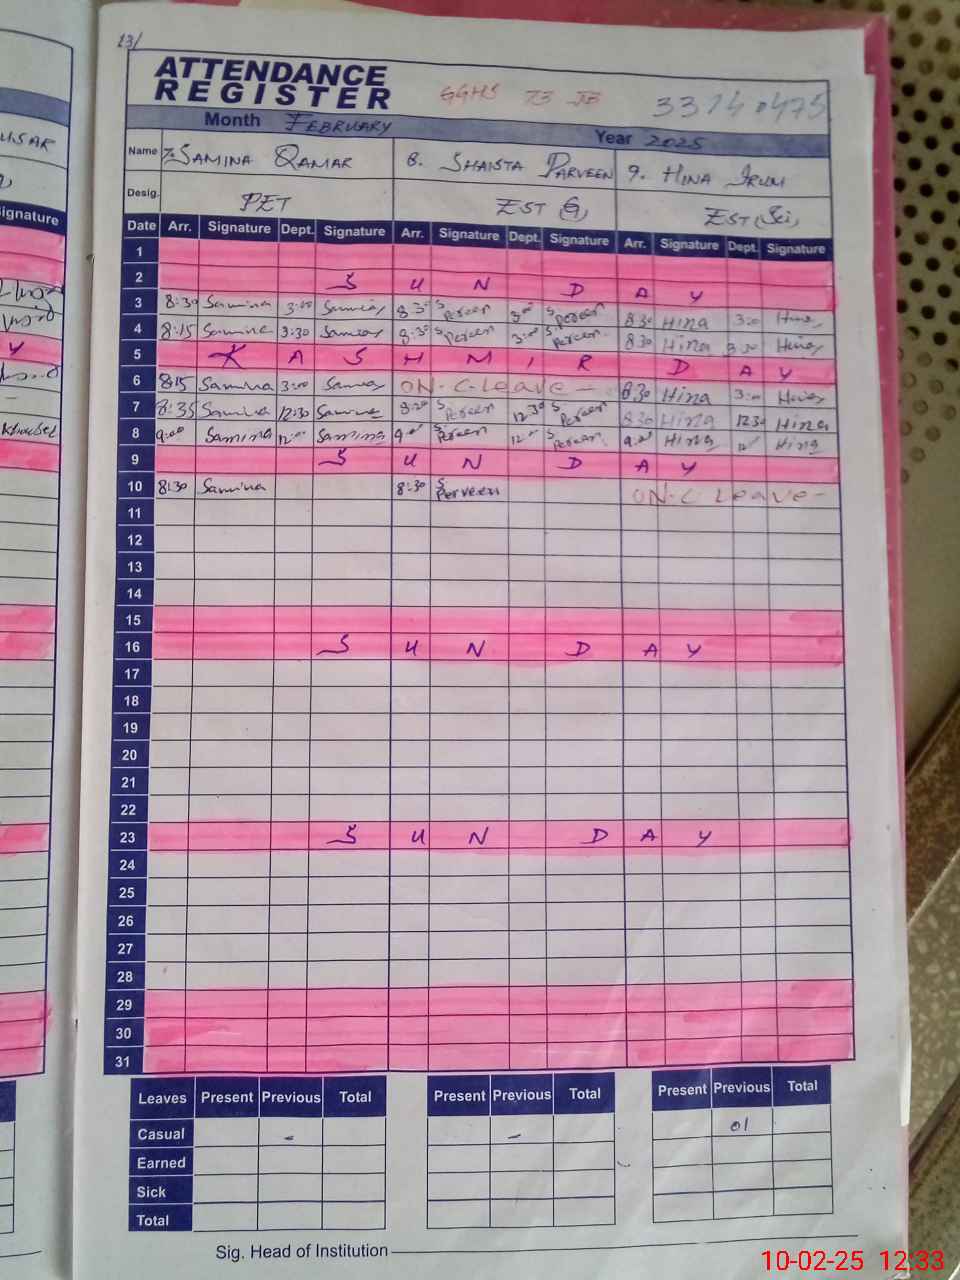 23/
ATTENDANCE
REGISTER
GGHS 73 JB
Month FEBRUARY Year 2025
Name 7. SAMINA QAMAR 8. SHAISTA PARVEEN 9. HINA IRUM
Desig. PET EST (G) EST (Sci)
Date Arr. Signature Dept. Signature Arr. Signature Dept. Signature Arr. Signature Dept. Signature
1
2 S U N D A Y
3 8:30 Samina 3:00 8:30 S Perveen 3:00 S Perveen 8:30 Hina 3:00
4 8:15 Samina 3:30 8:30 S Perveen 3:30 S Perveen 8:30 Hina 3:30
5 K A S H M I R D A Y
6 815 Samina 3:00 ON-C-Leave - 8:30 Hina 3:00
7 8:35 Samina 12:30 Samina 8:20 S Perveen 12:30 S Perveen 830 Hina 1230 Hina
8 9:00 Samina 12:00 Samina 9:00 S Perveen 12:00 S Perveen 9:00 Hina 12 Hina
9 S U N D A Y
10 8:30 Samina 8:30 S Perveen ON-C Leave -
11
12
13
14
15
16 S U N D A Y
17
18
19
20
21
22
23 S U N D A Y
24
25
26
27
28
29
30
31
Leaves Present Previous Total Present Previous Total Present Previous Total
Casual - - 01
Earned
Sick
Total
Sig. Head of Institution
10-02-25 12:33